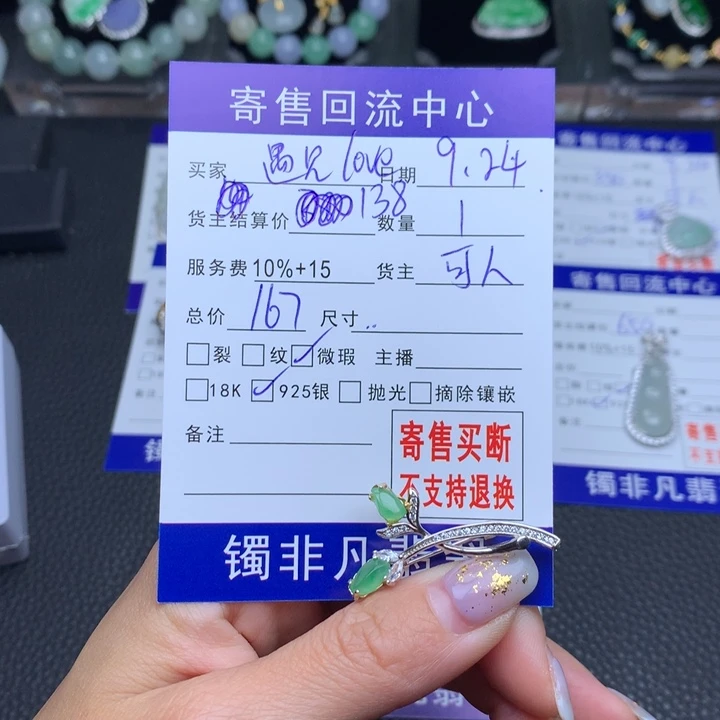 寄售回流中心
买家 遇见love 日期 9.24
货主结算价 138 数量 1
服务费 10%+15 货主 可人
总价 167 尺寸
裂 纹 微瑕 主播
18K 925银 抛光 摘除镶嵌
备注
寄售买断
不支持退换
镯非凡翡
寄售回流中心
寄售回流中心
镯非凡翡